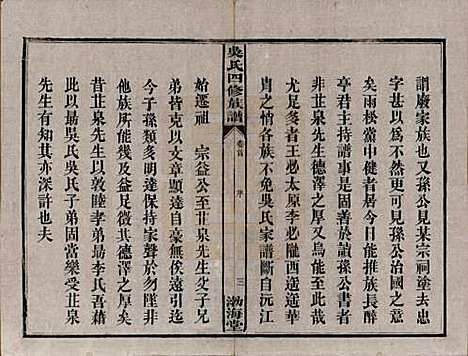 謂廢家族也又孫公見某宗祠塗去忠
字甚以爲不然歎曰此可見孫公治國之
矣雨松黨中健者居今日能推族長醉
亭君共主持譜事是固善於讀孫公書者
昔非苴泉先生德澤之厚又烏能至此哉
尤足多者王必太原李必隴西遙遙華
胄之惜各族不免吳氏家譜斷自沅江
吳氏四修族譜
卷首
序
三
渤海堂
始遷祖 宗益公至苴泉先生父子兄
弟皆克以文章顯達自豪無俟遠引三
子孫類多明達保持家聲於勿墮並非
他族所可幾及益足徵其德澤之厚矣
昔苴泉先生以敦睦孝弟勗李氏吾藉
此以勗吳氏吳氏子弟固當樂受苴泉
先生有知其亦深許也夫